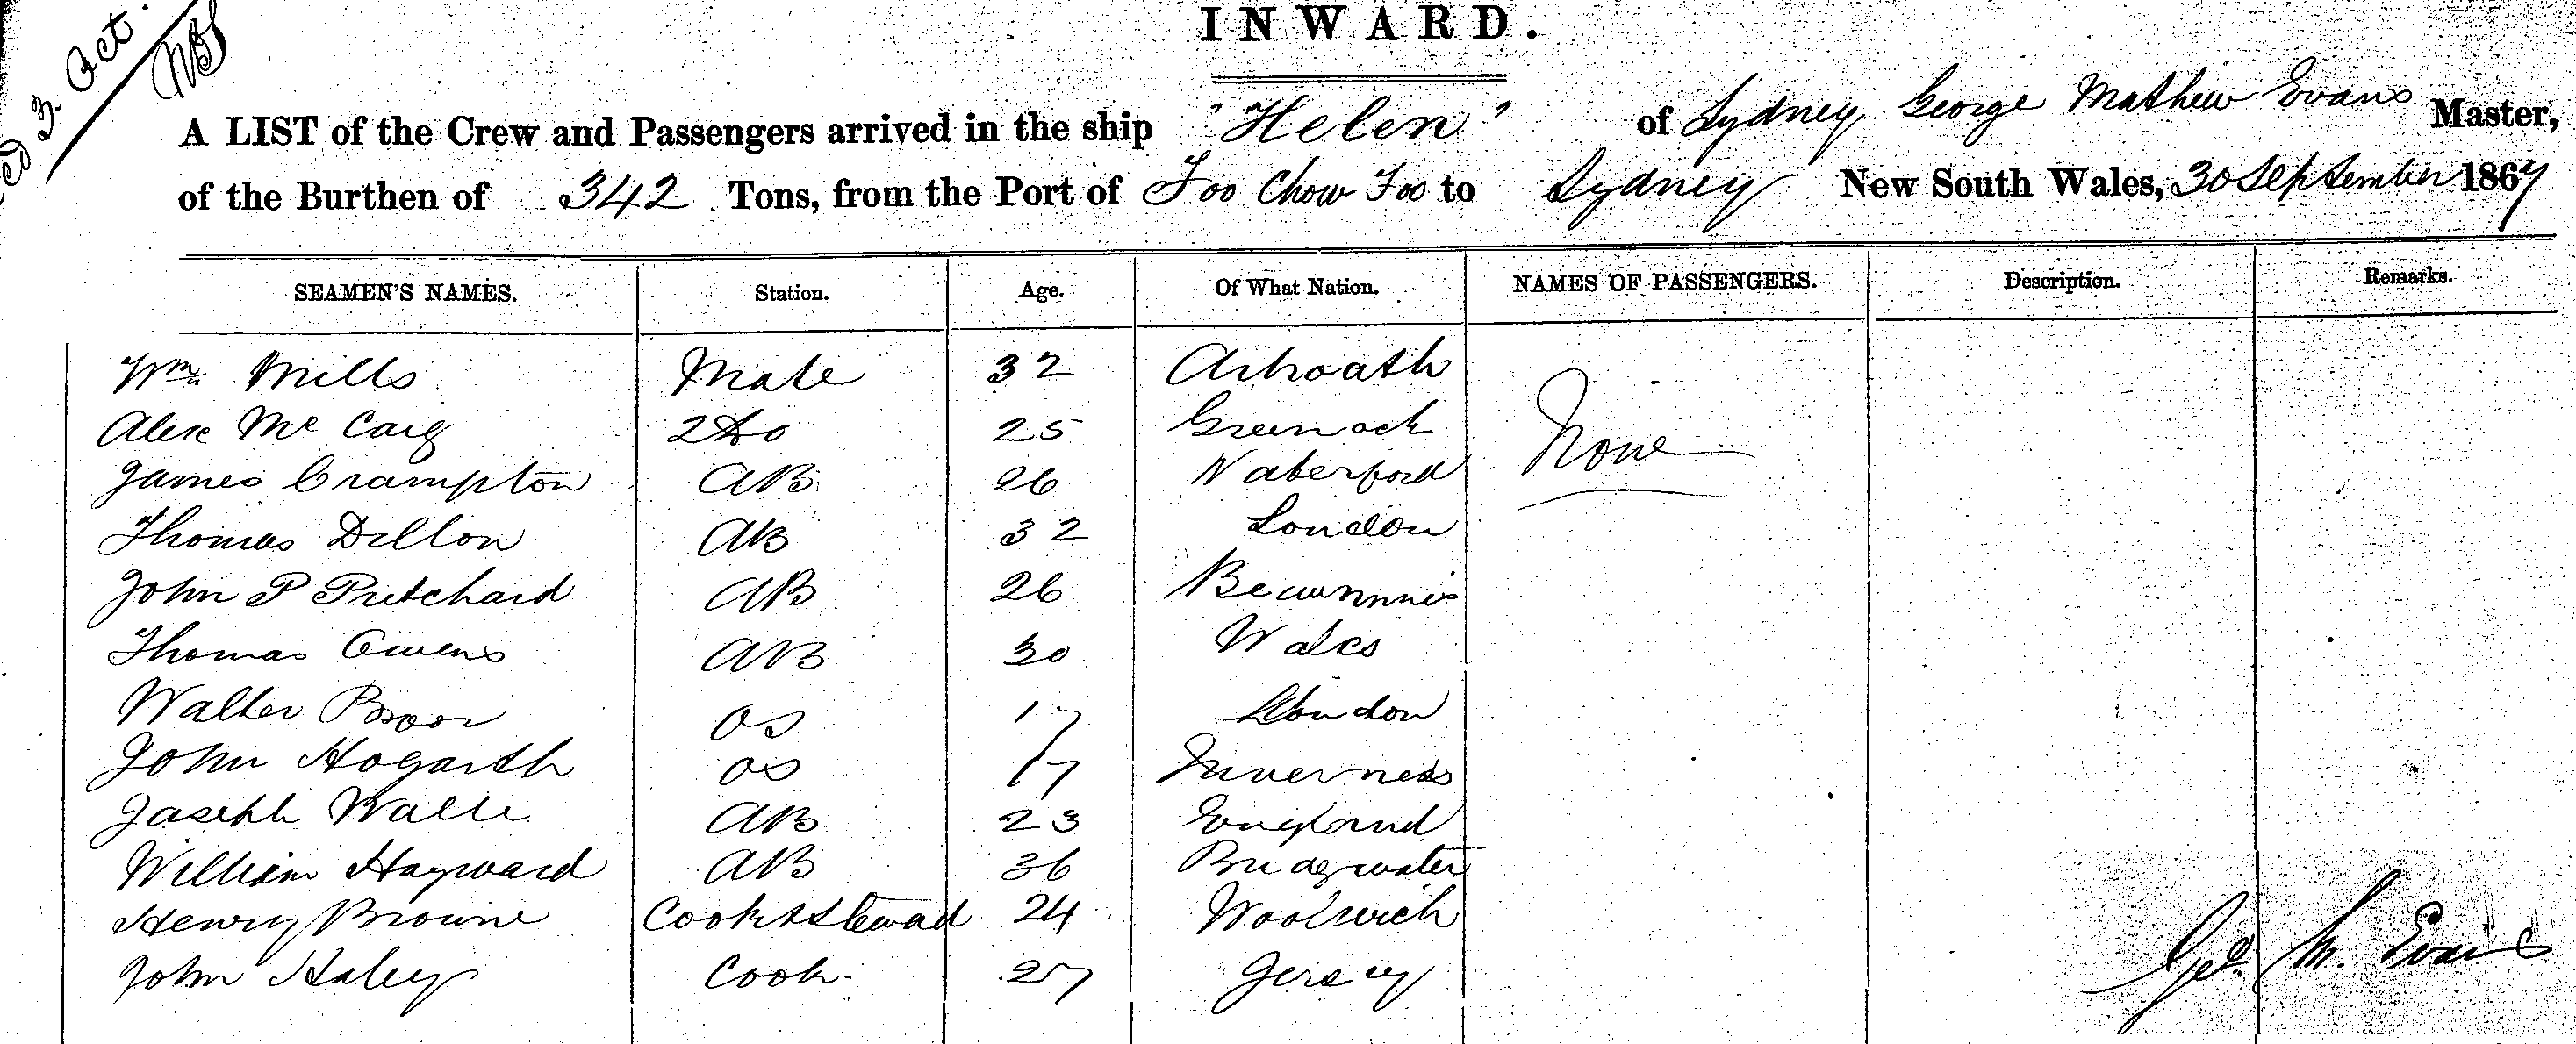 3. Oct.
INWARD.
A LIST of the Crew and Passengers arrived in the ship "Helen" of Sydney George Mathew Evans Master,
of the Burthen of 342 Tons, from the Port of Foo Chow Foo to Sydney New South Wales, 30 September 1867
SEAMEN'S NAMES. Station. Age. Of What Nation. NAMES OF PASSENGERS. Description. Remarks.
Wm Mills Mate 32 Arbroath
Alex Mc Caig 2 Do 25 Greenock None
James Crampton AB 26 Waterford
Thomas Dillon AB 32 London
John P Pritchard AB 26
Thomas Owens AB 30 Wales
Walter OS 17 London
John Hogarth OS 17 Inverness
Joseph AB 23 England
William Hayward AB 36 Bridgwater
Henry Browne Cook & Steward 24 Woolwich
John Haley Cook 27 Jersey
Geo. M. Evans